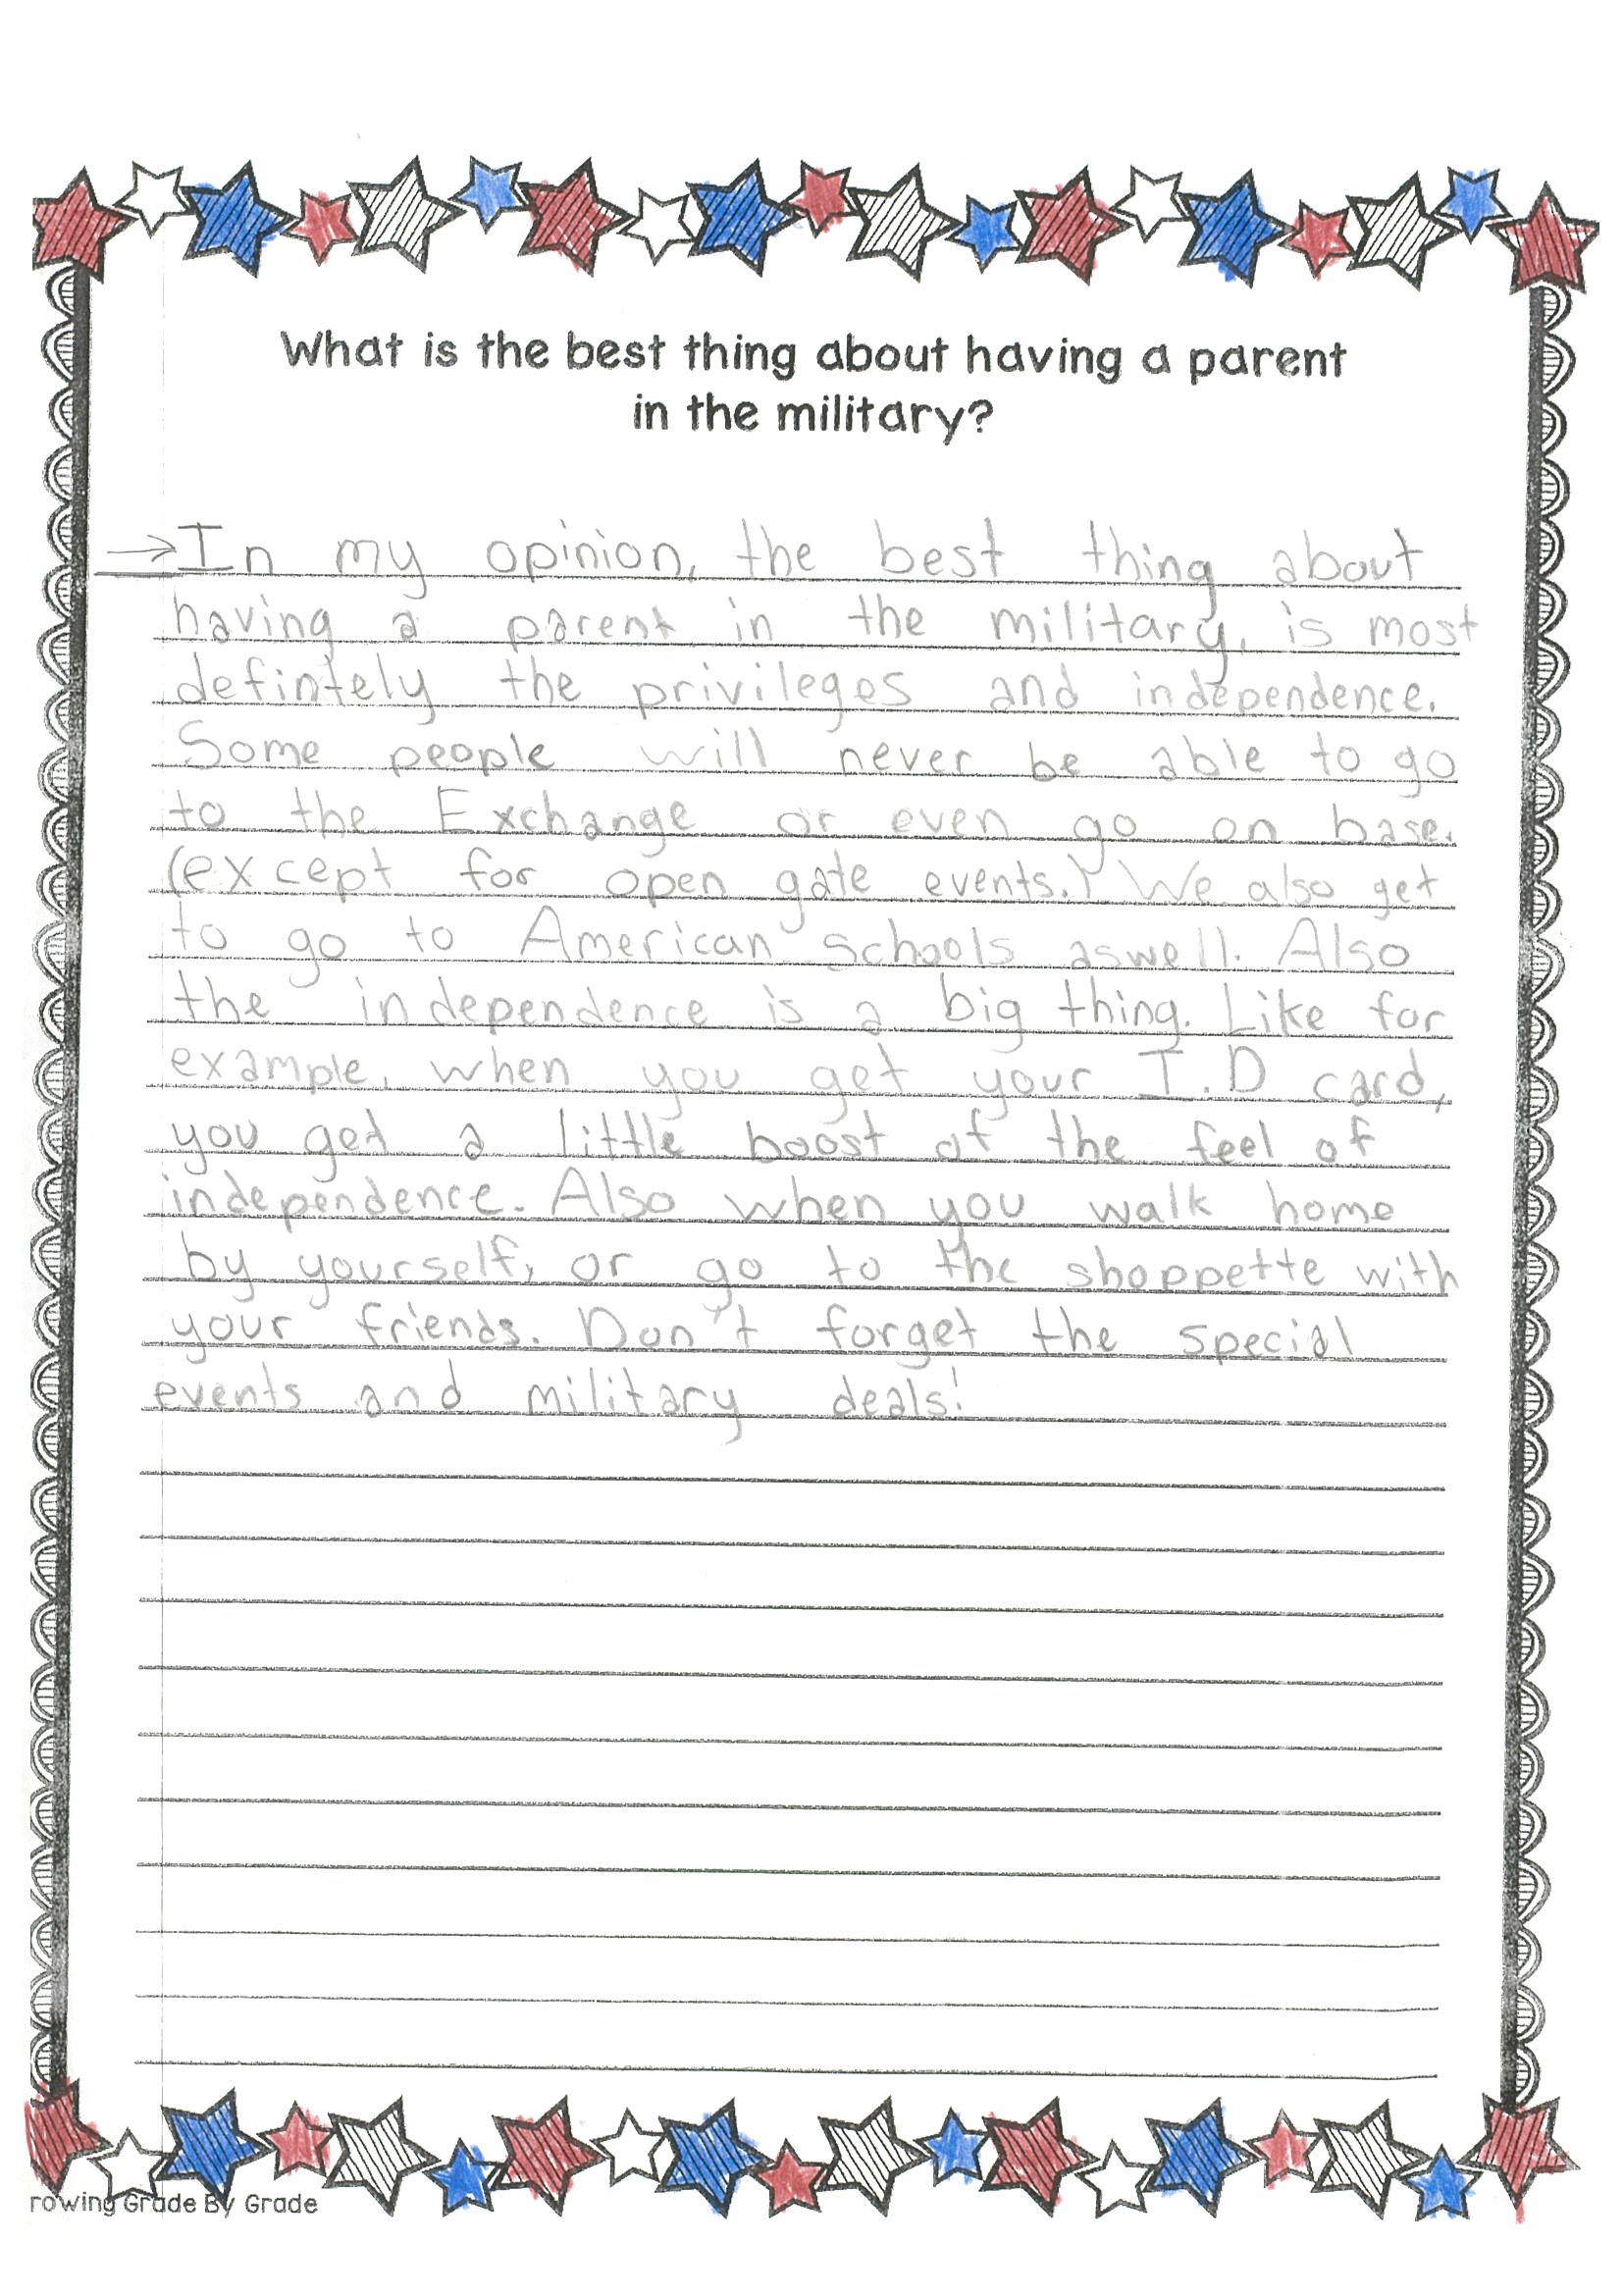 What is the best thing about having a parent
in the military?
→In my opinion, the best thing about
having a parent in the military, is most
defintely the privileges and independence.
Some people will never be able to go
to the Exchange or even go on base.
(except for open gate events.) We also get
to go to American schools aswell. Also
the independence is a big thing. Like for
example, when you get your I.D card,
you get a little boost of the feel of
independence. Also when you walk home
by yourself, or go to the shoppette with
your friends. Don't forget the special
events and military deals!
rowing Grade By Grade